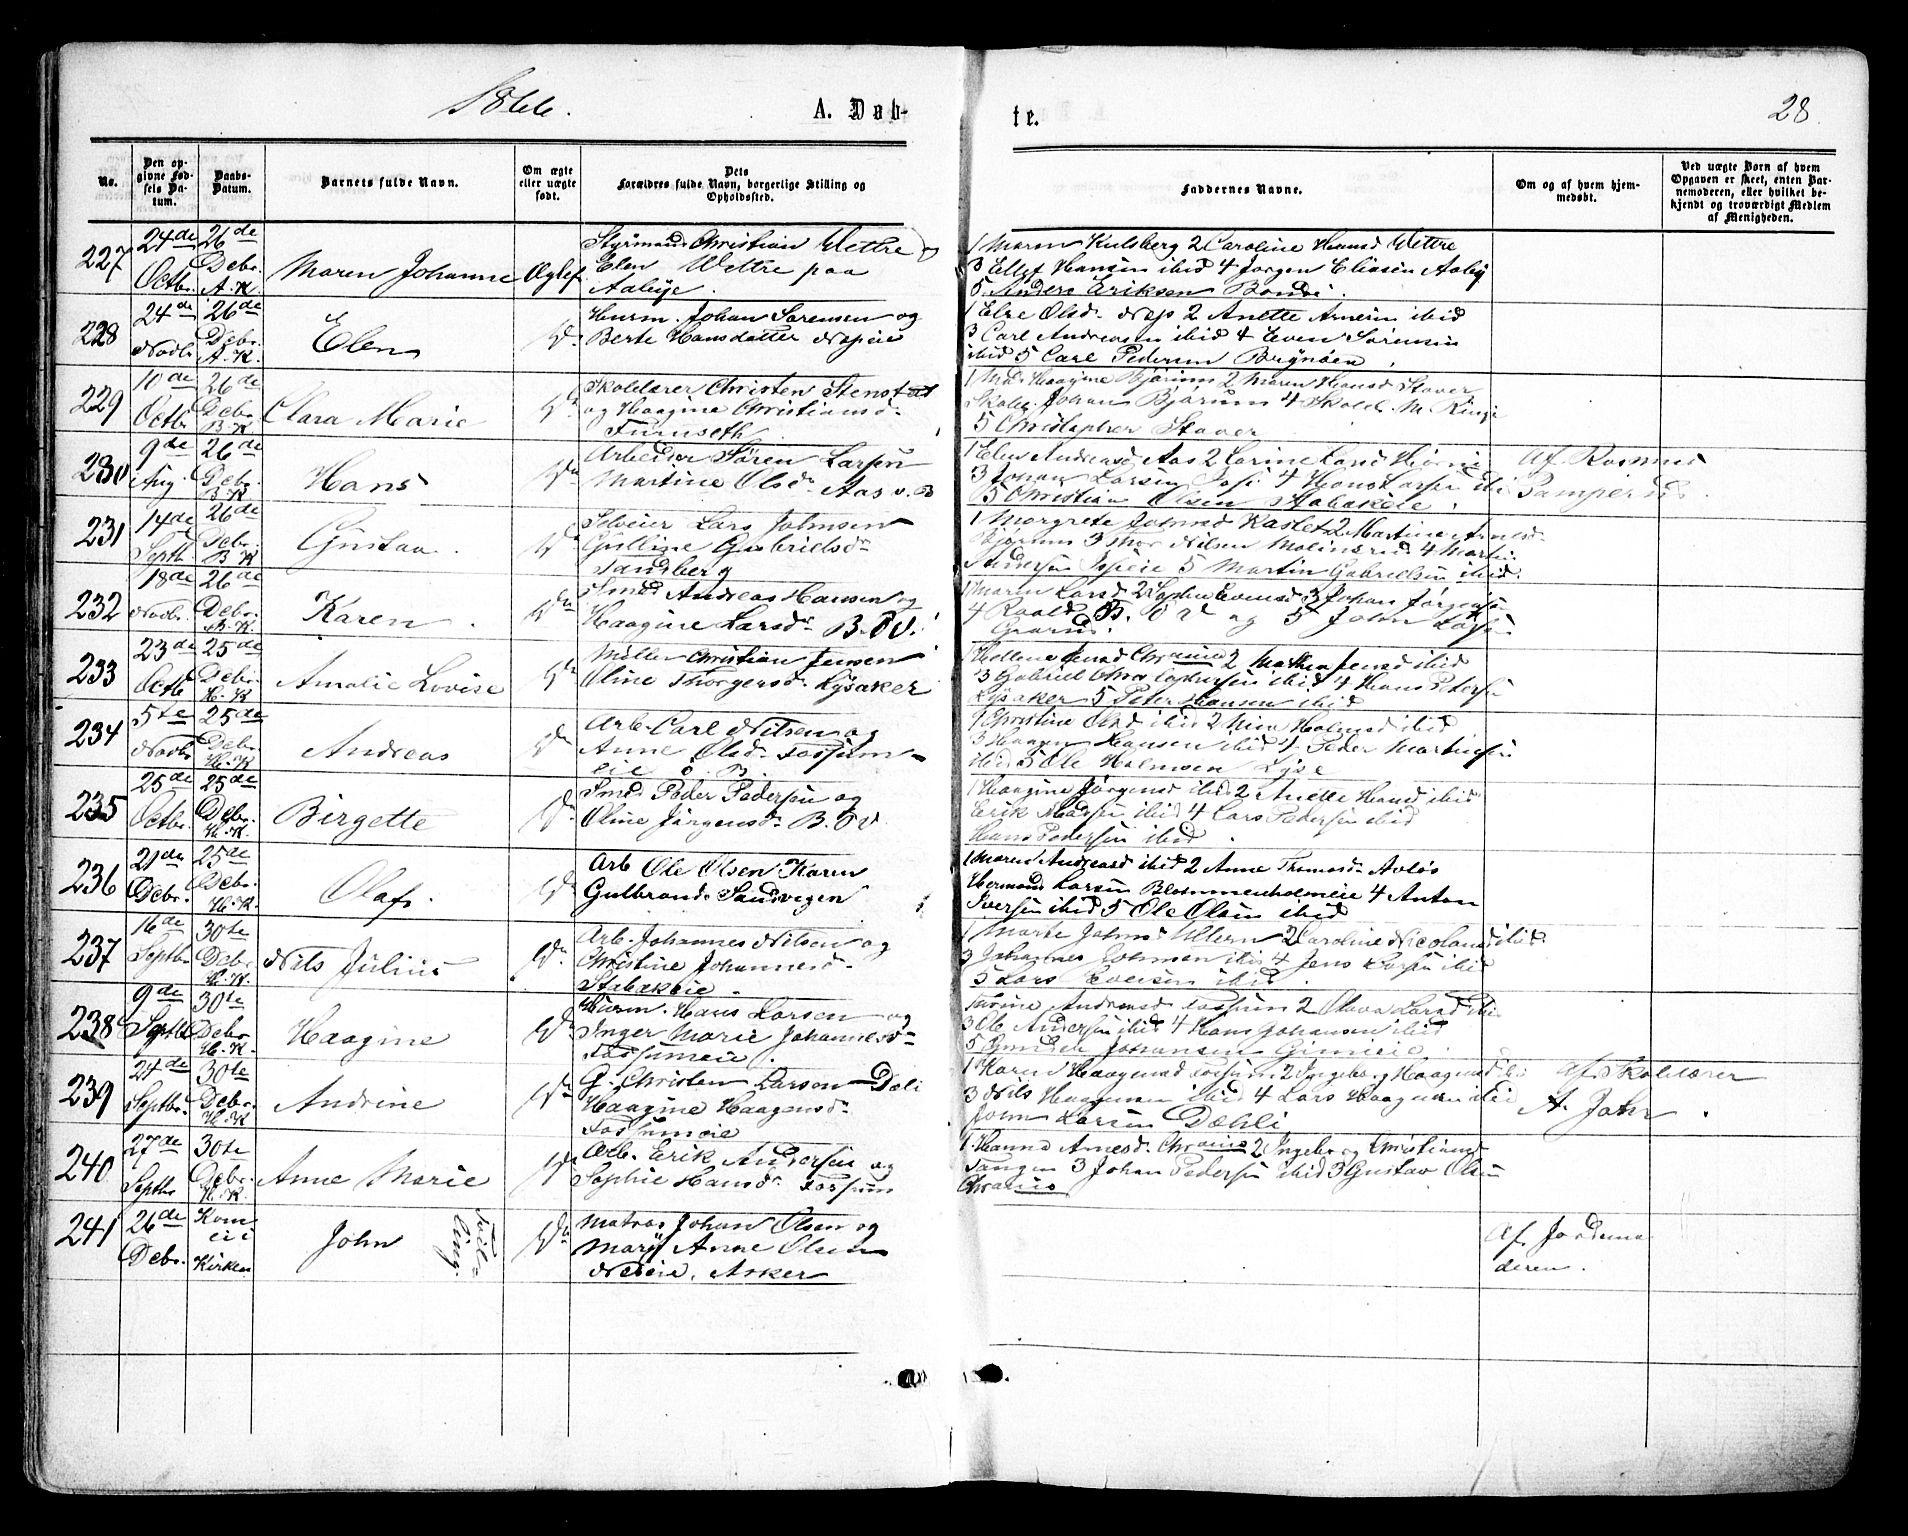 1866.
A. Døb-
te.
28
No.
Den op-
givne Fød-
sels Da-
tum.
Daabs-
Datum.
Barnets fulde Navn.
Om ægte
eller uægte
født.
Dets
Forældres fulde Navn, borgerlige Stilling og
Opholdssted.
Faddernes Navne.
Om og af hvem hjem-
medøbt.
Ved uægte Børn af hvem
Opgaven er skeet, enten Bar-
nemoderen, eller hvilket be-
kjendt og troværdigt Medlem
af Menigheden.
227
24de
Octbr.
26de
Debr.
A. K
Maren Johanne
Ægtef
Styrmand Christian Wettre og
Elen Wettre paa
Aabye.
1 Maren Kulsberg 2 Caroline Hansd Wettre
3 Ellef Hansen ibid 4 Jørgen Eliasen Aaby
5 Anders Eriksen Bondi.
228
24de
Novbr
26de
Debr
A. K.
Elen
Do
Husm. Johan Sørensen og
Berte Hansdatter
1 Else Olsdr 2 Anette ibid
3 Carl Andreasen ibid 4 Even Sørensen
ibid 5 Carl Pedersen
229
10de
Octbr
26de
Debr
B. K
Clara Marie
Do
Skolelærer Christen Stenstad
og Haagine Christiansdr
Furuseth.
Haagine Bjørum 2 Maren Hansd Staver
Johan Bjørum 4 Skolel. M. Ringi
5 Christopher Staver
230
9de
Aug.
26de
Debr.
B. K
Hans
Do
Arbeider Søren Larsen
Martine Olsdr Aas v. B
1 Elen Andreasd Aas 2 Karine Larsd
3 Johan Larsen 4 Hans Larsen ibi
5 Christian Olsen Stabækeie.
Af Rasmus
231
14de
Septb.
26de
Debr.
B K
Gustav.
Do
Selveier Lars Johnsen
Gulline Gabrielsdr
Sandberg
1 Margrete Johnsd 2 Martine
Bjørum 3 Nilsen 4 Martin
Andersen 5 Martin Gabrielsen ibid.
232
18de
Novbr.
26de
Debr.
B. K.
Karen.
Do
Smed Andreas Hansen og
Haagine Larsdr B. Ø V.
1 Maren Larsd 2 Sophie Evensd 3 Johan Jørgensen
4 Roald B. Ø V og 5 John Larsen
233
23de
Octb
25de
Debr.
H. K
Amalie Lovise
Do
Møller Christian Jensen
Oline Thorgersdr Lysaker
1 Hellene Jensd Chrania 2 Jensd ibid
3 Gabriel ibid 4 Hans Pedersen
Lysaker 5 Peter Hansen ibid
234
5te
Novbr
25de
Debr
H. K
Andreas
Do
Arb. Carl Nilsen og
Anne Olsdr Fossum-
eie Ø. B.
1 Christine Olsd ibid 2 Mia Holmsd ibid
3 Haagen Hansen ibid 4 Peder Martinsen
ibid 5 Ole Holmsen
235
25de
Octbr.
25de
Debr.
H. K
Birgette
Do
Smed Peder Pedersen og
Oline Jørgensdr B. Ø V
1 Haagine Jørgensd ibid 2 Anette Hansd ibid
Erik Madsen ibid 4 Lars Pedersen ibid
Hans Pedersen ibid.
236
21de
Debr.
25de
Debr.
H. K.
Olaf.
Do
Arb Ole Olsen Karen
Gulbrandsd Sandvigen
1 Maren Andreasd ibid 2 Anne Thomasdr Avløs
Hermand Larsen Blommenholmeie 4 Anton
Iversen ibid 5 Ole Olsen ibid
237
16de
Septbr
30te
Debr.
H. K.
Nils Julius
Do
Arb. Johannes Nilsen og
Christine Johannesdr
Stabækeie.
1 Marte Johnsd Ullern 2 Caroline Nicolausd ibid
3 Johannes ibid 4 Jens Larsen ibid
5 Lars Evensen ibid.
238
9de
Septb
30te
Debr
H. K.
Haagine
Do
Husm. Hans Larsen og
Inger Marie Johannesdr
Fossumeie.
Andreasd Fossum 2 Olava Larsd ibi
3 Ole Andersen ibid 4 Hans Johansen ibid
5 Johansen
239
24de
Septbr
30te
Debr.
H. K
Andrine
Do
G. Christen Larsen Deli
Haagine Haagensdr
Fossumeie
1 Karen Haagensd Fossum 2 Ingeborg Haagensd ibi
3 Nils Haagensen ibid 4 Lars Haagensen ibid
John Larsen Dæhli
Af Skolelærer
A. Johr.
240
27de
Septbr
30te
Debr.
H. K
Anne Marie
Do
Arb. Erik Andersen og
Sophie Hansdr Fossum
1. Hanna Arnesdr Chrania 2 Ingeborg Christiansd
Tangen 3 Johan Pedersen ibid 3 Gustav Olsen
Chrania
241
26de
Debr.
Kom
ei i
Kirken
John
Tvil-
ling.
Do
Matros Johan Olsen og
Mary Anne Olsen
Neseie. Asker
Af Jordemo
deren.